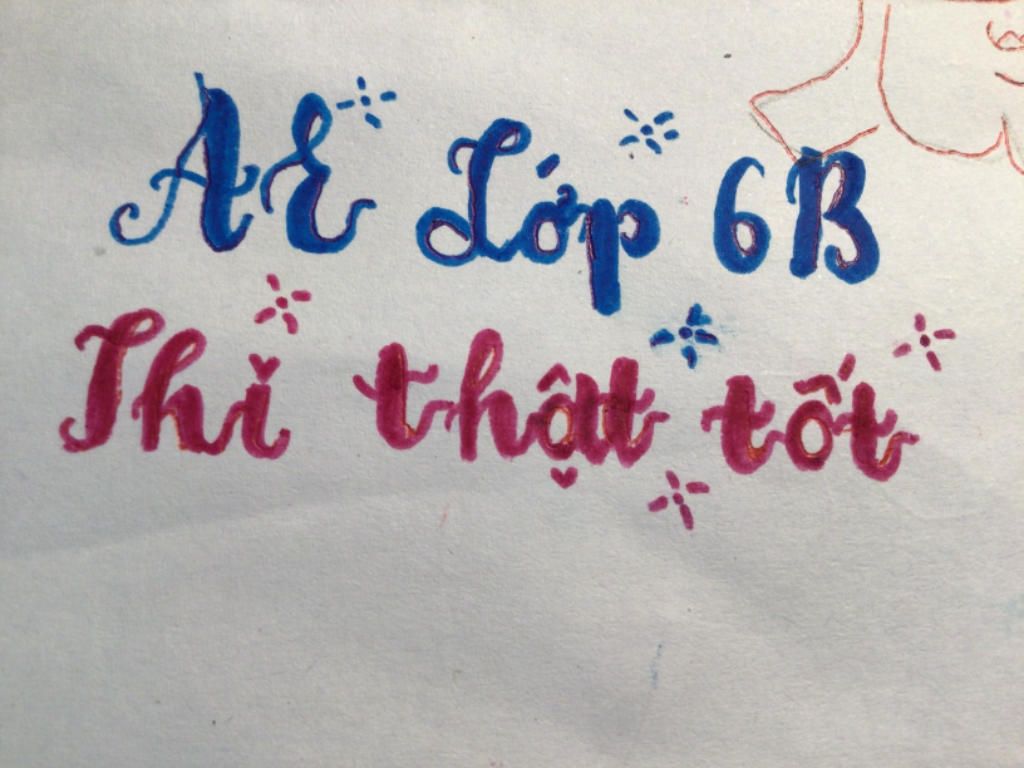 AE Lớp 6B
Thi thật tốt